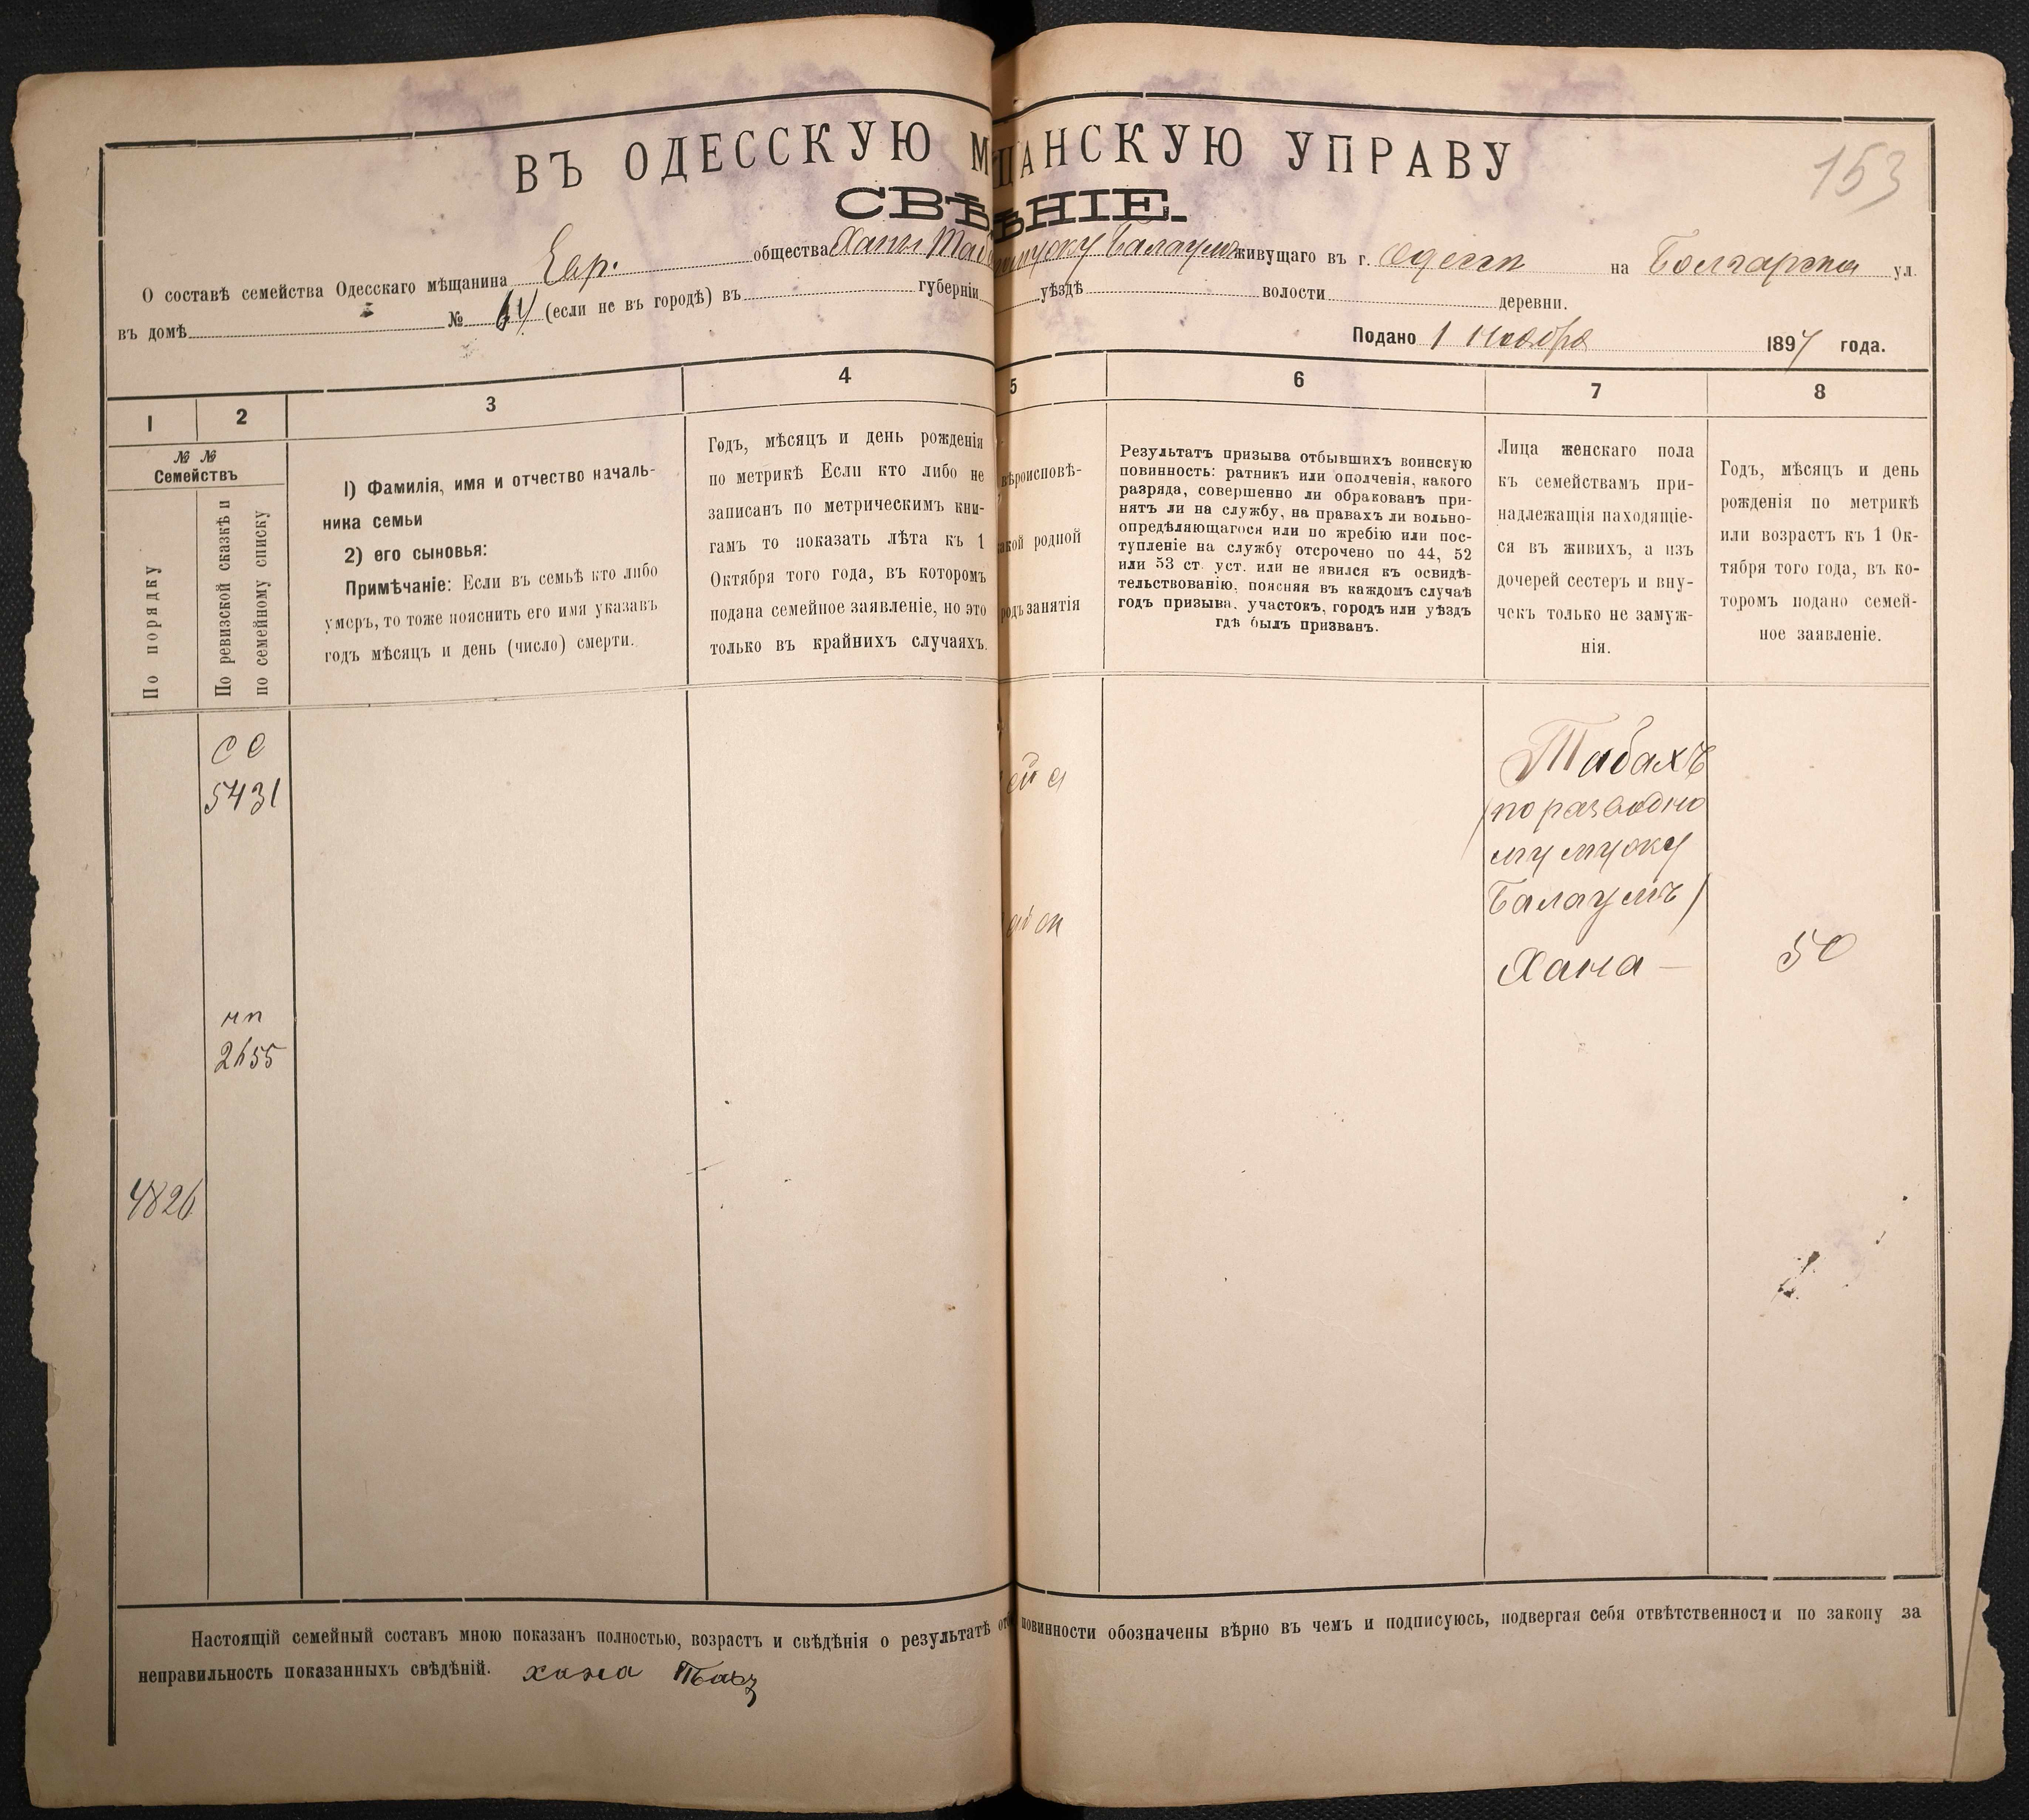 153
ВЪ ОДЕССКУЮ М ЩАНСКУЮ УПРАВУ
СВѢ ѢНІЕ.
О составѣ семейства Одесскаго мѣщанина Евр. общества Ханы Таб мужу Балаумъ живущаго въ г. Одессѣ на Болгарской ул.
въ домѣ № 64 (если не въ городѣ) въ губерніи уѣздѣ волости деревни.
Подано 1 Ноября 1897 года.
1 2 3 4 5 6 7 8
№ №
Семействъ
По порядку
По ревизской сказкѣ и
по семейному списку
1) Фамилія, имя и отчество началь-
ника семьи
2) его сыновья:
Примѣчаніе: Если въ семьѣ кто либо
умеръ, то тоже пояснить его имя указавъ
годъ мѣсяцъ и день (число) смерти.
Годъ, мѣсяцъ и день рожденія
по метрикѣ Если кто либо не
записанъ по метрическимъ кни-
гамъ то показать лѣта къ 1
Октября того года, въ которомъ
подана семейное заявленіе, но это
только въ крайнихъ случаяхъ.
вѣроисповѣ-
акой родной
родъ занятія
Результатъ призыва отбывшихъ воинскую
повинность: ратникъ или ополченія, какого
разряда, совершенно ли обракованъ при-
нятъ ли на службу, на правахъ ли вольно-
опредѣляющагося или по жребію или пос-
тупленіе на службу отсрочено по 44, 52
или 53 ст. уст. или не явился къ освидѣ-
тельствованію, поясняя въ каждомъ случаѣ
годъ призыва, участокъ, городъ или уѣздъ
гдѣ былъ призванъ.
Лица женскаго пола
къ семействамъ при-
надлежащія находящіе-
ся въ живихъ, а изъ
дочерей сестеръ и вну-
чекъ только не замуж-
нія.
Годъ, мѣсяцъ и день
рожденія по метрикѣ
или возрастъ къ 1 Ок-
тября того года, въ ко-
торомъ подано семей-
ное заявленіе.
СС
5431
нп
2655
4826
Табахъ
(по разводно
му мужу
Балаумъ)
Хана — 50
Настоящій семейный составъ мною показанъ полностью, возрастъ и свѣдѣнія о результатѣ от повинности обозначены вѣрно въ чемъ и подписуюсь, подвергая себя отвѣтственности по закону за
неправильность показанныхъ свѣдѣній. хана